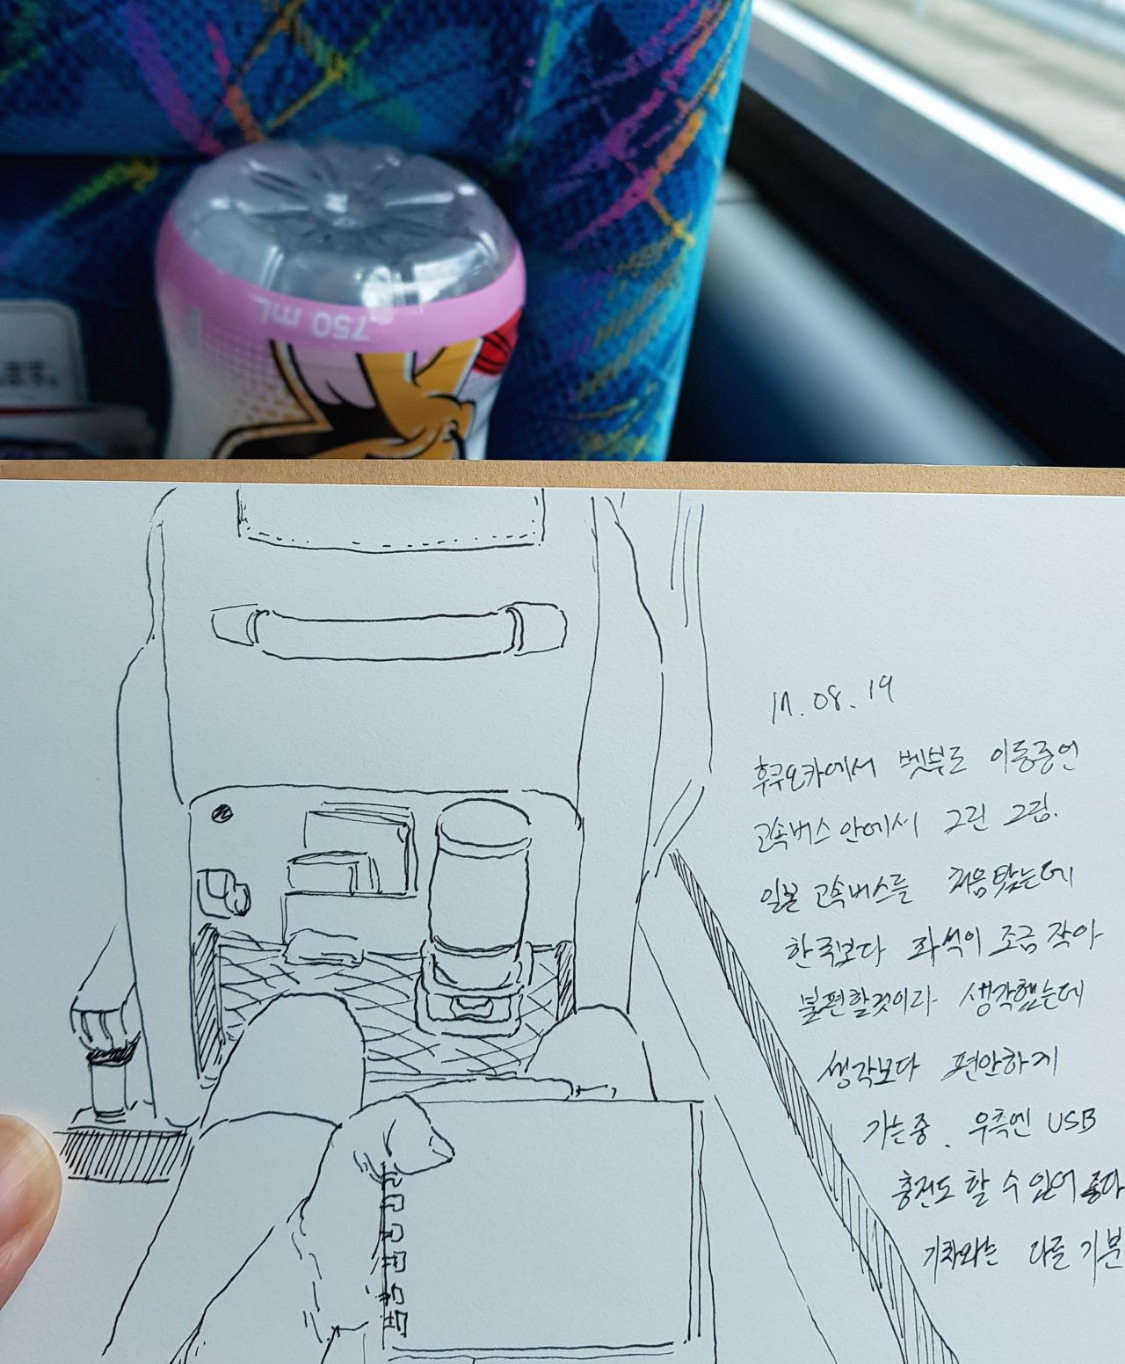 750 mL
ます。
17.08.19
후쿠오카에서 벳부로 이동중인
고속버스 안에서 그린 그림.
일본 고속버스를 처음탔는데
한국보다 좌석이 조금 작아
불편할것이라 생각했는데
생각보다 편안하게
가는중. 우측엔 USB
충전도 할 수 있어 좋다
기차와는 다른 기분